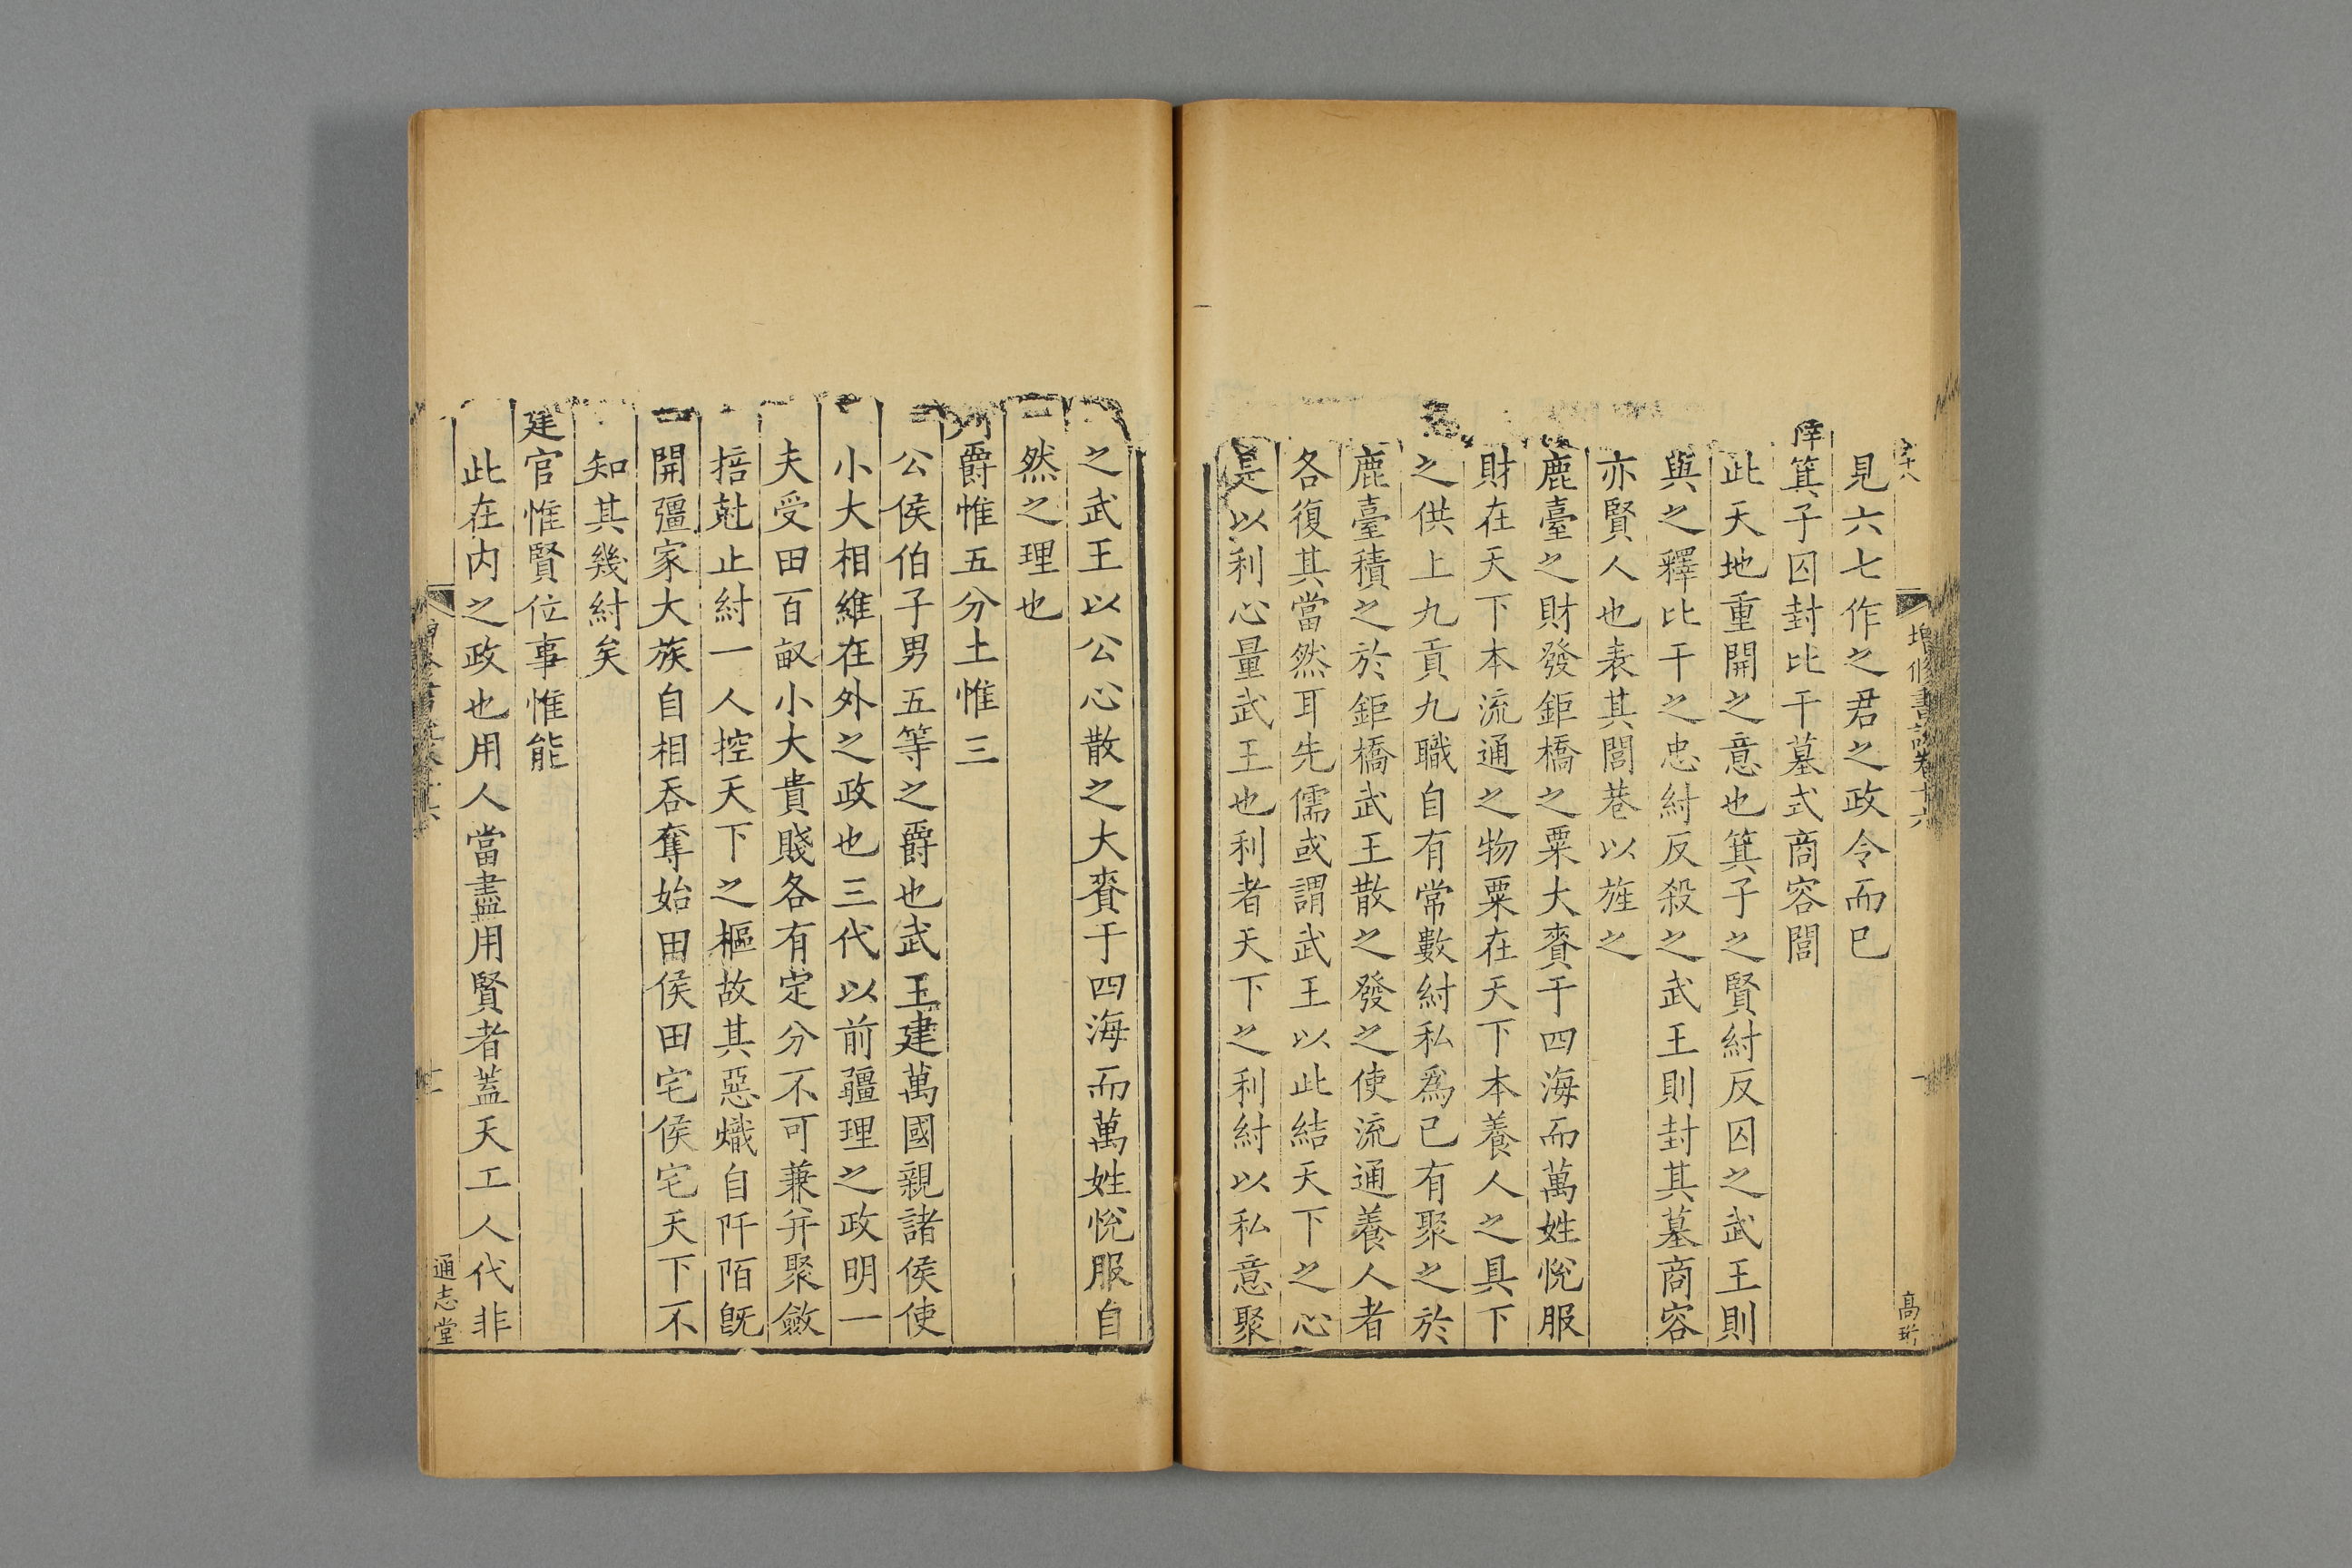 增修書說卷十六
高珩
見六七作之君之政令而已
釋箕子囚封比干墓式商容閭
此天地重開之意也箕子之賢紂反囚之武王則
與之釋比干之忠紂反殺之武王則封其墓商容
亦賢人也表其閭巷以旌之
鹿臺之財發鉅橋之粟大賚于四海而萬姓悅服
財在天下本流通之物粟在天下本養人之具下
之供上九貢九職自有常數紂私爲已有聚之於
鹿臺積之於鉅橋武王散之發之使流通養人者
各復其當然耳先儒或謂武王以此結天下之心
是以利心量武王也利者天下之利紂以私意聚
之武王以公心散之大賚于四海而萬姓悅服自
然之理也
列爵惟五分土惟三
公侯伯子男五等之爵也武王建萬國親諸侯使
小大相維在外之政也三代以前疆理之政明一
夫受田百畝小大貴賤各有定分不可兼并聚斂
掊尅止紂一人控天下之樞故其惡熾自阡陌旣
開彊家大族自相吞奪始田侯田宅侯宅天下不
知其幾紂矣
建官惟賢位事惟能
此在内之政也用人當盡用賢者蓋天工人代非
通志堂